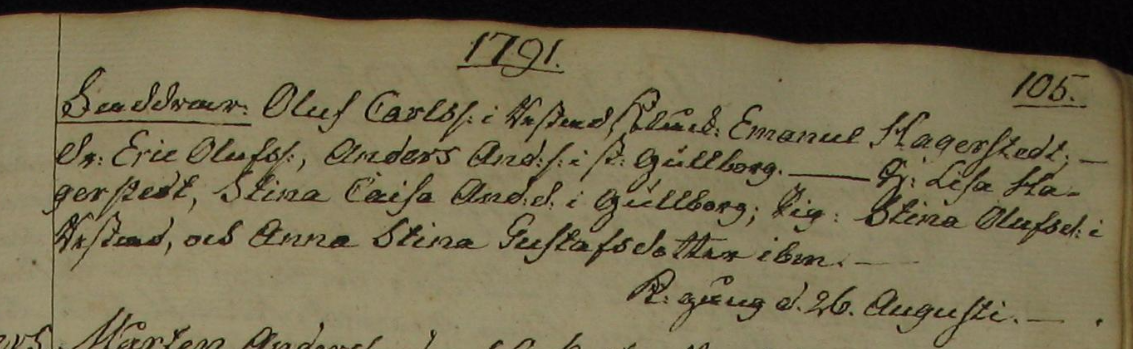 1791.
105.
Faddrar: Oluf Carlss: i Emanuel Hagerstedt; —
Dr: Eric Olufss:, Anders And:s: i st: Gullborg. — Hu: Lisa Ha-
gerstedt, Stina Caisa And:d: i Gullborg; Pig: Stina Olufsd: i
och Anna Stina Gustafsdotter ibm. —
K: gång d. 26. Augusti. —
Mårten